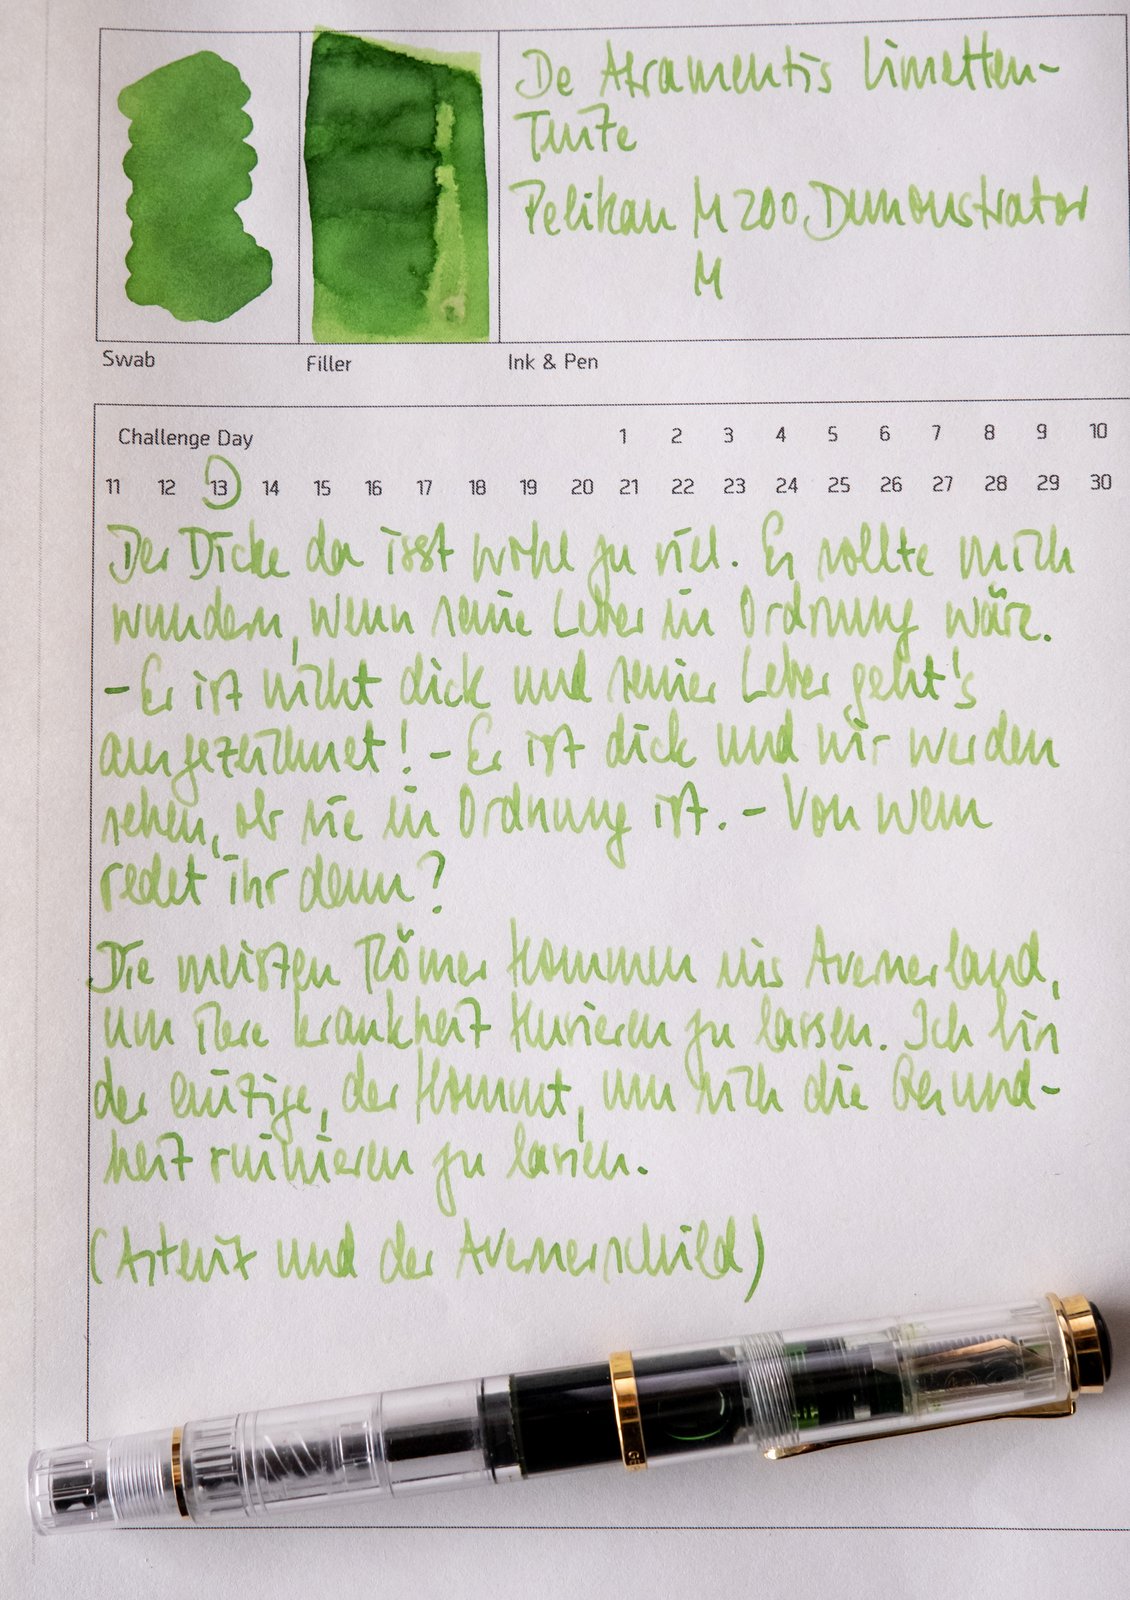 De Atramentis Limetten-
Tinte
Pelikan M200 Demonstrator
M
Swab
Filler
Ink & Pen
Challenge Day 1 2 3 4 5 6 7 8 9 10
11 12 13 14 15 16 17 18 19 20 21 22 23 24 25 26 27 28 29 30
Der Dicke da isst wohl zu viel. Es sollte mich
wundern, wenn seine Leber in Ordnung wäre.
- Er ist nicht dick und seiner Leber geht's
ausgezeichnet! - Er ist dick und wir werden
sehen, ob sie in Ordnung ist. - Von wem
redet ihr denn?
Die meisten Römer kommen ins Avernerland,
um ihre Krankheit kurieren zu lassen. Ich bin
der einzige, der kommt, um sich die Gesund-
heit ruinieren zu lassen.
(Asterix und der Avernerschild)